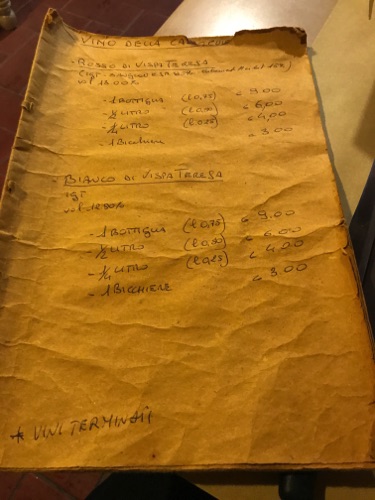 VINO DELLA CASA
- ROSSO DI VISPA TERESA
vol 13.00%
- 1 BOTTIGLIA (l 0,75) € 9,00
- ½ LITRO (l 0,50) € 6,00
- ¼ LITRO (l 0,25) € 4,00
- 1 Bicchiere € 3,00
- BIANCO DI VISPA TERESA
igt
vol 12.50%
- 1 BOTTIGLIA (l 0,75) € 9,00
- ½ LITRO (l 0,50) € 6,00
- ¼ LITRO (l 0,25) € 4,00
- 1 BICCHIERE € 3,00
* VINI TERMINATI